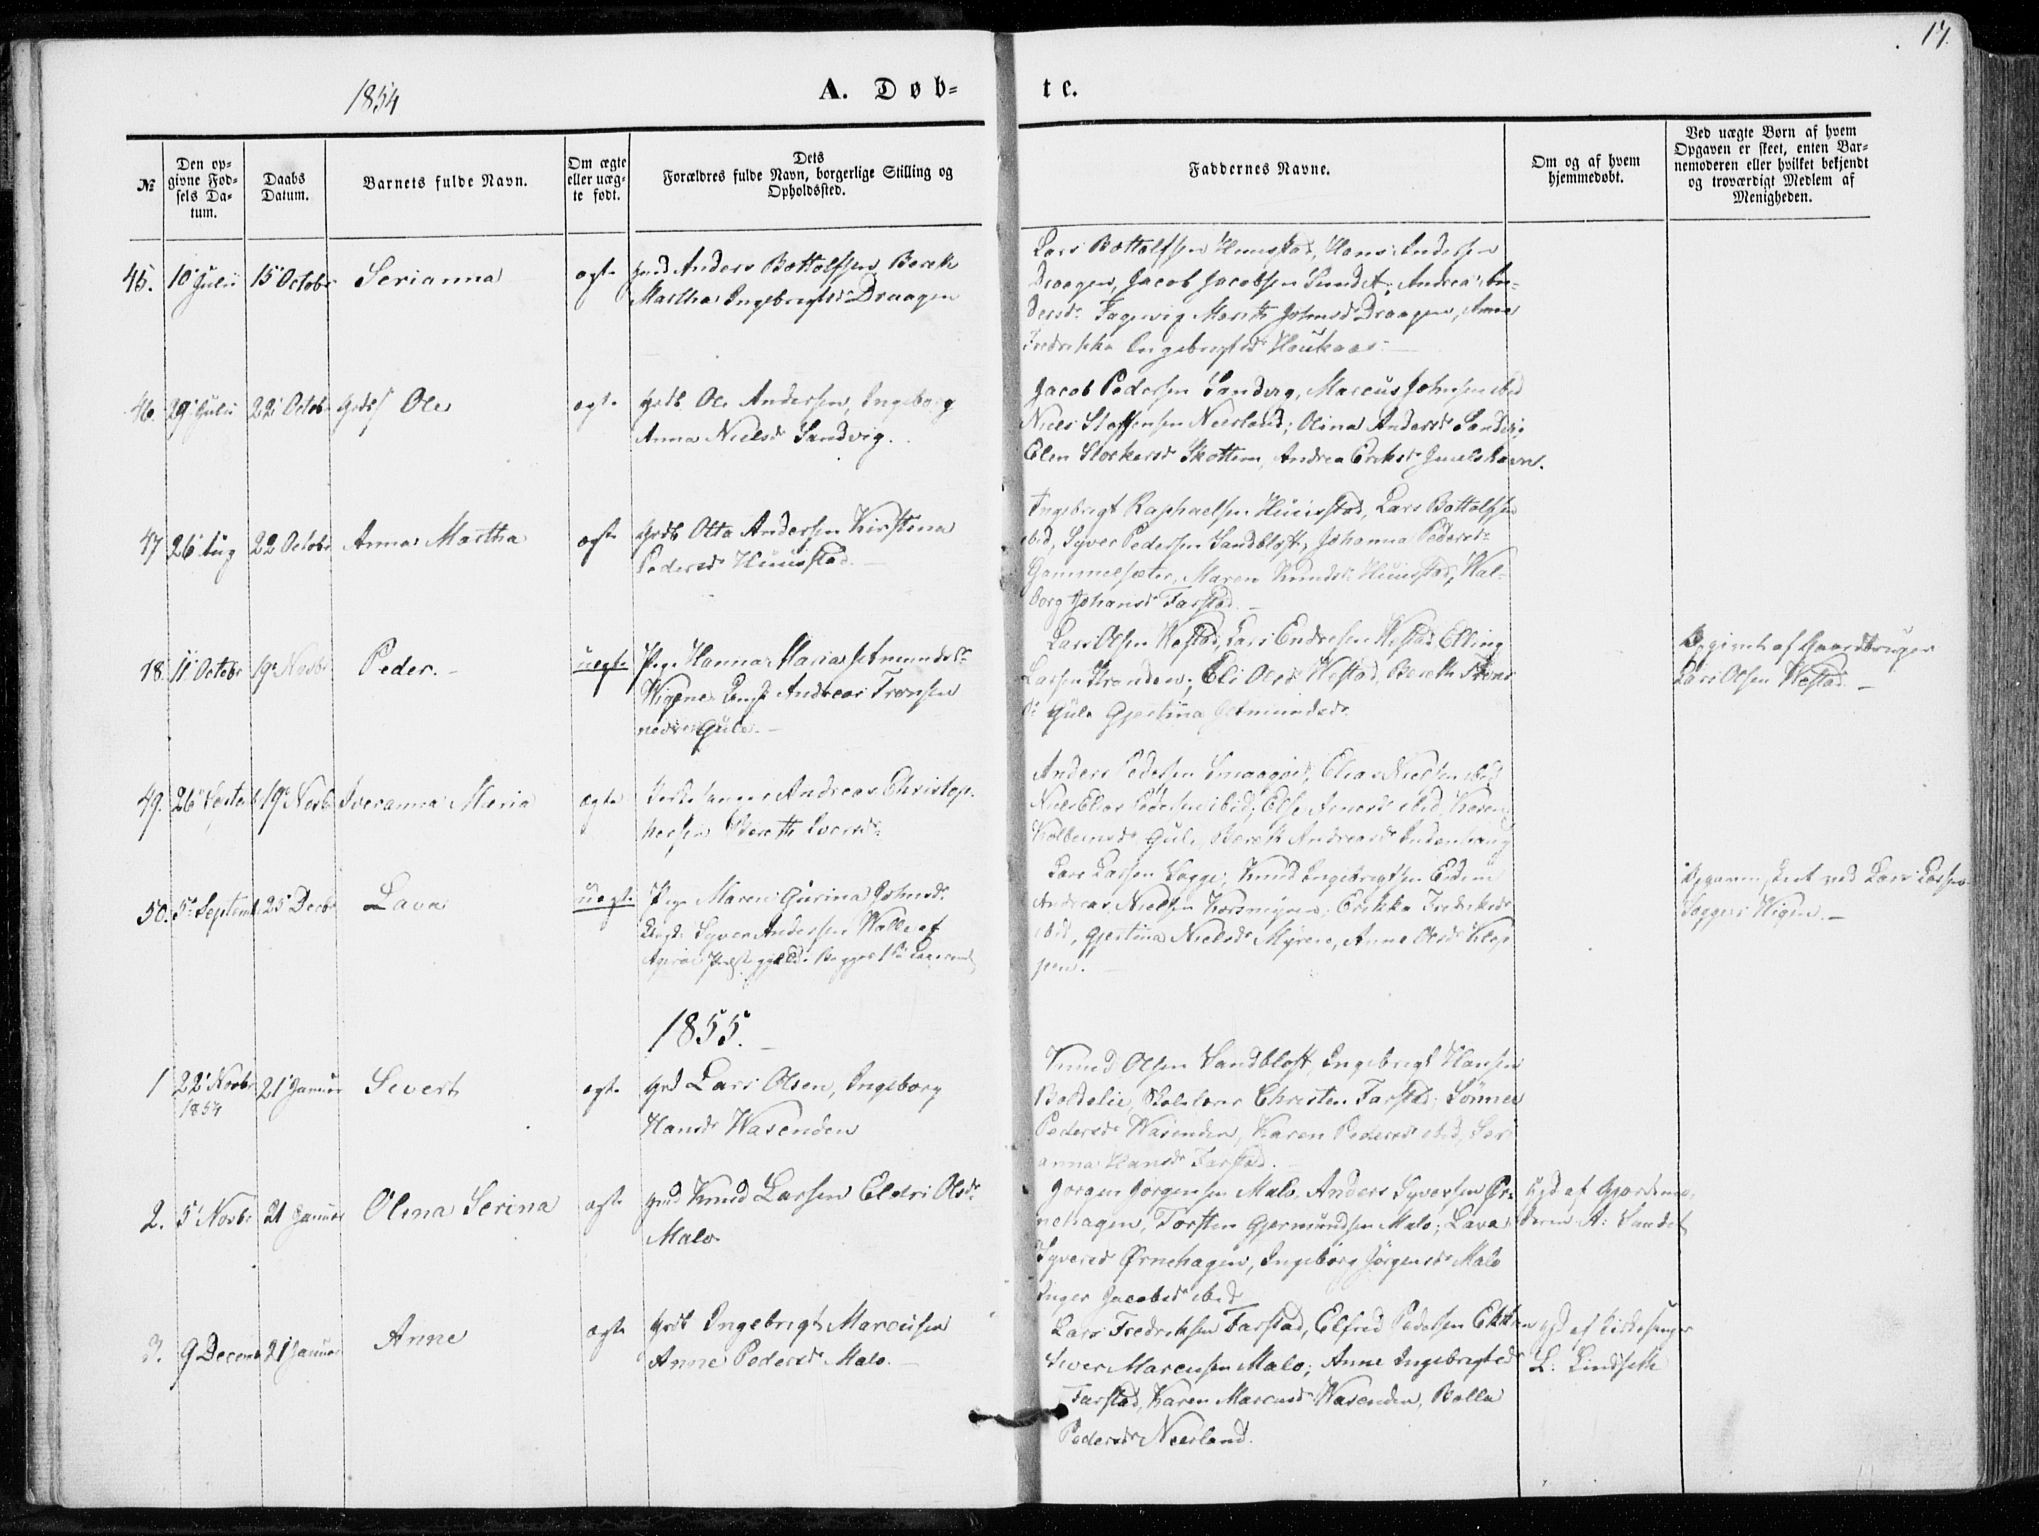 17.
1854
A. Døb-
te.
№
Den op-
givne Fød-
sels Da-
tum.
Daabs
Datum.
Barnets fulde Navn.
Om ægte
eller uæg-
te født.
Dets
Forældres fulde Navn, borgerlige Stilling og
Opholdssted.
Faddernes Navne.
Om og af hvem
hjemmedøbt.
Ved uægte Børn af hvem
Opgaven er skeet, enten Bar-
nemoderen eller hvilket bekjendt
og troværdigt Medlem af
Menigheden.
45. 10 Julii 15 Octobr Serianna ægte Anders Bottolfsen Bereth
Martha Ingebrigtsdr Draagen
Lars Bottolfsen Huustad, Hans Andersen
Draagen, Jacob Jacobsen Sundet, Andrea An-
dersdr Fagervig Marith Johnsdr Draagen, Anne
Fredrikke Ingebrigtsdr Haukaas
46. 29 Julii 22 Octobr Ole ægte Grdb Ole Andersen, Ingeborg
Anna Nielsdr Sandvig.
Jacob Pedersen Sandvig, Marcus Johnsen ibid
Niels Steffensen Neerland; Olina Andersdr Sandvig
Elen Skottem, Andrea Eriksdr
47 26 Aug 22 Octobr Anna Martha ægte Grdb Otto Andersen Kirstina
Pedersdr Huustad.
Ingebrigt Raphaelsen Huustad, Lars Bottolfsen
ibid, Syver Pedersen Sandbløst, Johanna Pedersdr
Gammelsæter, Maren Knudsdr Huustad, Wal-
borg Johansdr Farstad.
48. 11 Octobr 19 Novbr Peder. uægte Pige Hanna Maria Amundsdr
Andreas Tronsen
nedre Gule.
Lars Olsen Westad, Lars Endresen Westad Elling
Larsen Stranden; Eli Olsdr Westad, Bereth
Gule Gjertina Amundsdr
Opgivet af Gaardbruger
Lars Olsen Westad.
49. 26 Septembr 19 Novbr Iveranna Maria ægte Andreas Christop-
hersen Bereth Iversdr
Anders Pedersen Smaagjes, Elias Nielsen ibid
Niels Elias Pedersen ibid, Else ibid, Karen
Kolbensdr Gule, Bereth Andreasdr
50. 5 Septembr 25 Decbr Lava uægte Pige Maren Gurina Johnsdr
Syver Andersen Walle af
Agerøe Præstegjeld.
Lars Larsen Sogge, Knud Ingebrigtsen Eidem
Andreas Nielsen Kormyren, Erikka Fredriksdr
ibid, Gjertina Nielsdr Myren, Anne Olsdr Klop-
pen.
Opgaven skeet ved Lars Larsen
Sogge
1855.
1 22 Novbr
1854 21 Januar Sivert ægte Grd Lars Olsen, Ingeborg
Hansdr Wasenden
Knud Olsen Sandbløst, Ingebrigt Hansen
Boldelie, Skolelærer Christen Farstad, Sønnev
Pedersdr Wasenden, Karen Pedersdr ibid, Seri-
anna Hansdr Farstad.
2. 5 Novbr 21 Januar Olina Serina ægte Grd Knud Larsen Eldri Olsdr
Malo
Jørgen Jørgensen Malo, Anders Syversen Ør-
nehagen, Torsten Gjermundsen Malo; Lava
Syversdr Ørnehagen, Ingeborg Jørgensdr Malo
Inger Jacobsdr ibid
af Gjordemo-
deren A: Sandet
3. 9 Decembr 21 Januar Anne ægte Grdb Ingebrigt Marcusen
Anne Pedersdr Malo.
Lars Fredriksen Farstad, Elfred Pedersen
Siver Marcusen Malo; Anne Ingebrigtsdr
Farstad, Karen Marcusdr Wasenden, Bolla
Pedersdr Neerland.
af Kirkesanger
L. Lindseth